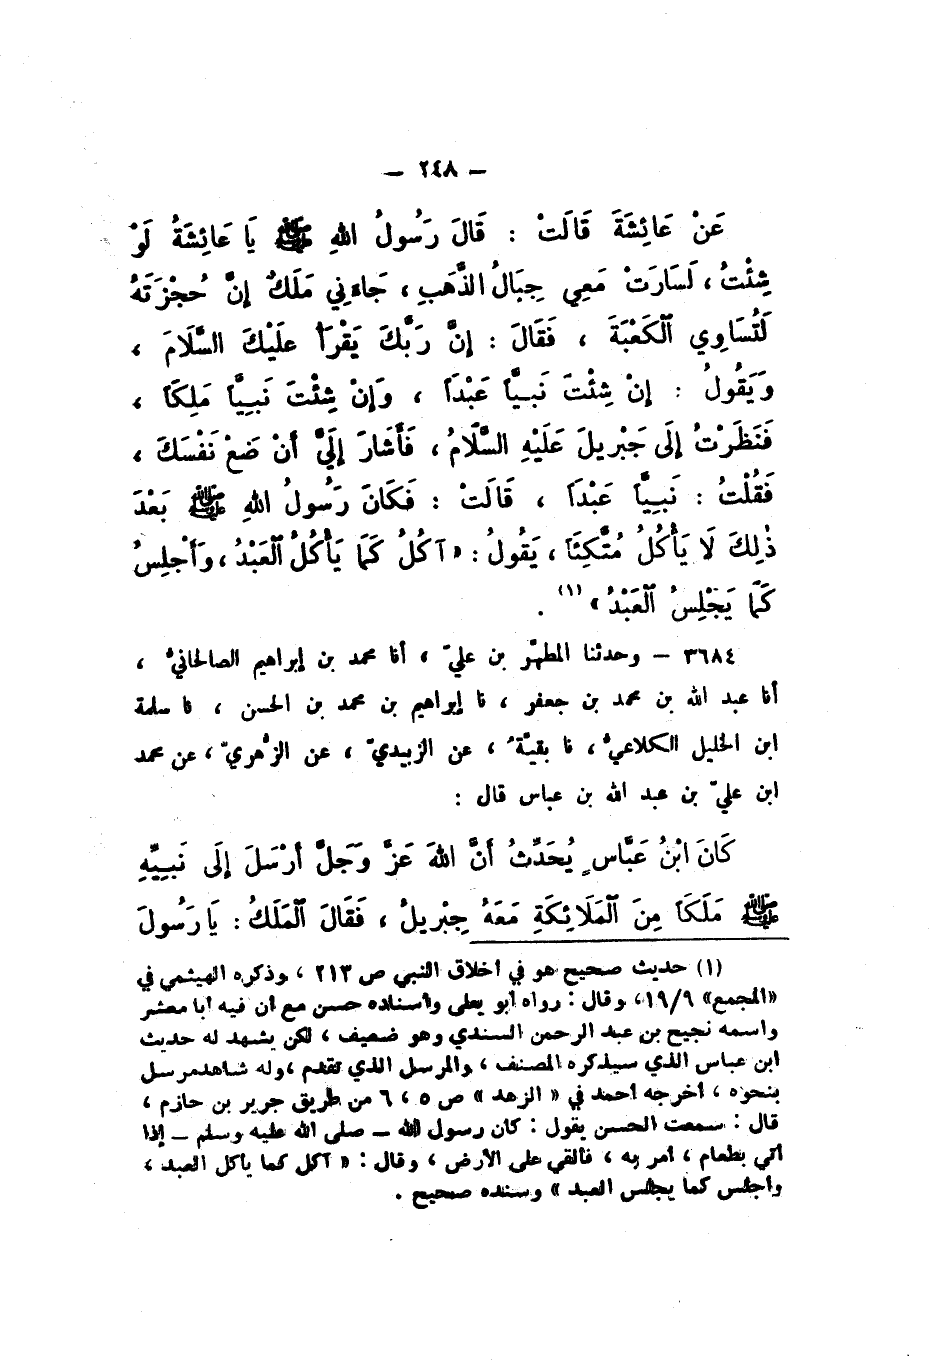 — ٢٤٨ —
عَنْ عَائِشَةَ قَالَتْ : قَالَ رَسُولُ اللهِ ﷺ يَا عَائِشَةُ لَوْ
شِئْتُ ، لَسَارَتْ مَعِي جِبَالُ الذَّهَبِ ، جَاءَنِي مَلَكٌ إِنَّ حُجْزَتَهُ
لَتُسَاوِي الْكَعْبَةَ ، فَقَالَ : إِنَّ رَبَّكَ يَقْرَأُ عَلَيْكَ السَّلَامَ ،
وَيَقُولُ : إِنْ شِئْتَ نَبِيًّا عَبْدًا ، وَإِنْ شِئْتَ نَبِيًّا مَلِكًا ،
فَنَظَرْتُ إِلَى جَبْرِيلَ عَلَيْهِ السَّلَامُ ، فَأَشَارَ إِلَيَّ أَنْ ضَعْ نَفْسَكَ ،
فَقُلْتُ : نَبِيًّا عَبْدًا ، قَالَتْ : فَكَانَ رَسُولُ اللهِ ﷺ بَعْدَ
ذٰلِكَ لَا يَأْكُلُ مُتَّكِئًا ، يَقُولُ : « آكُلُ كَمَا يَأْكُلُ الْعَبْدُ ، وَأَجْلِسُ
كَمَا يَجْلِسُ الْعَبْدُ » (١) .
٣٦٨٤ — وحدثنا المطهّر بن عليّ ، أنا محمد بن إبراهيم الصالحانيُّ ،
أنا عبد الله بن محمد بن جعفر ، نا إبراهيم بن محمد بن الحسن ، نا سلمة
ابن الخليل الكلاعيُّ ، نا بقيّةُ ، عن الزبيديّ ، عن الزُّهريّ ، عن محمد
ابن عليّ بن عبد الله بن عباس قال :
كَانَ ابْنُ عَبَّاسٍ يُحَدِّثُ أَنَّ اللهَ عَزَّ وَجَلَّ أَرْسَلَ إِلَى نَبِيِّهِ
ﷺ مَلَكًا مِنَ الْمَلَائِكَةِ مَعَهُ جِبْرِيلُ ، فَقَالَ الْمَلَكُ : يَا رَسُولَ
(١) حديث صحيح هو في أخلاق النبي ص ٢١٣ ، وذكره الهيثمي في
«المجمع» ١٩/٩، وقال : رواه أبو يعلى واسناده حسن مع أن فيه أبا معشر
واسمه نجيح بن عبد الرحمن السندي وهو ضعيف ، لكن يشهد له حديث
ابن عباس الذي سيذكره المصنف ، والمرسل الذي تقدم ،وله شاهدمرسل
بنحوه ، أخرجه أحمد في « الزهد » ص ٥ ، ٦ من طريق جرير بن حازم ،
قال : سمعت الحسن يقول : كان رسول الله — صلى الله عليه وسلم — إذا
أتي بطعام ، أمر به ، فألقي على الأرض ، وقال : « آكل كما يأكل العبد ،
وأجلس كما يجلس العبد » وسنده صحيح .